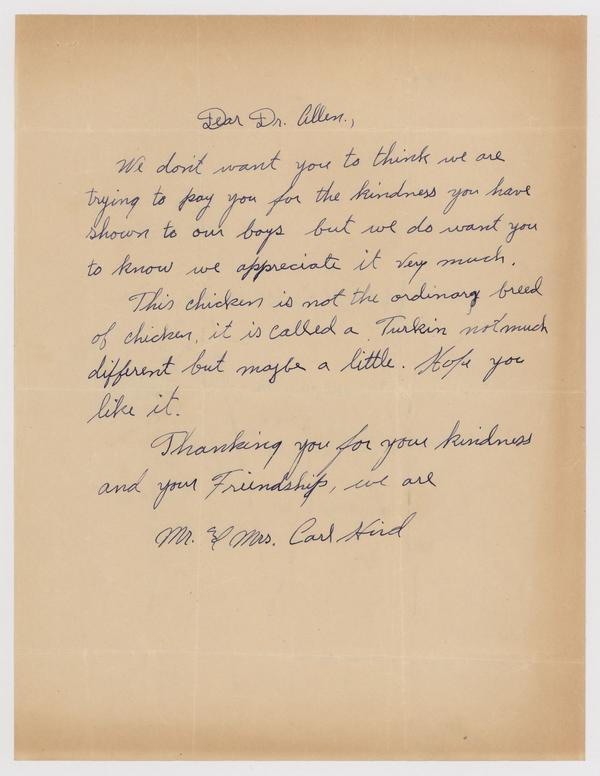 Dear Dr. Allen.,
We don't want you to think we are
trying to pay you for the kindness you have
shown to our boys but we do want you
to know we appreciate it very much.
This chicken is not the ordinary breed
of chicken, it is called a Turkin not much
different but maybe a little. Hope you
like it.
Thanking you for your kindness
and your Friendship, we are
Mr. & Mrs. Carl Hird